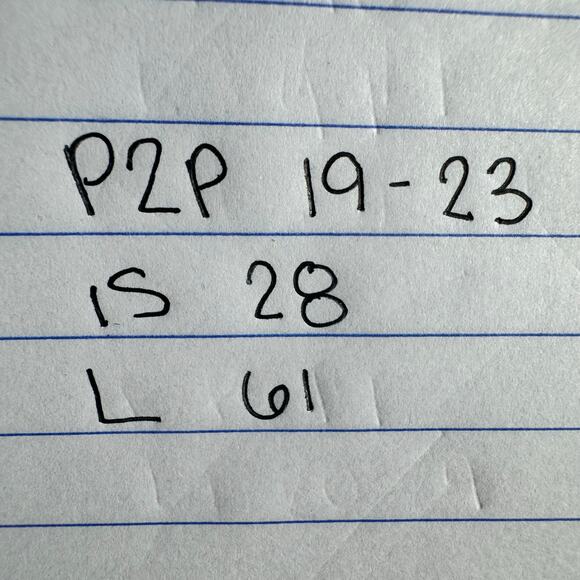 P2P 19-23
is 28
L 61